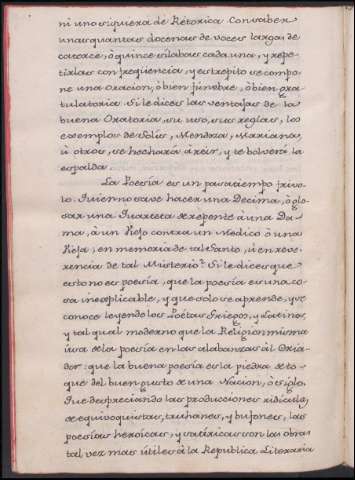 ni uno siquiera de Retorica. Con saber
unas quantas docenas de voces largas de
catorce, ò quince silabas cada una, y repe-
tirlas con frequencia, y estrepito se compo-
ne una oracion, ò bien funebre, ò bien gra-
tulatoria. Si le dices las ventajas de la
buena Oratoria, su uso, sus reglas, los
exemplos de Solis, Mendoza, Mariana,
ù otros, se hechará à reir, y te bolverá la
espalda.
La Poesía es un pasatiempo frivo-
lo. Quien no save hacer una Decima, ò glo-
sar una Quarteta de repente à una Da-
ma, à un Viejo contra un Medico ò una
Vieja, en memoria de tal Santo, ù en reve-
rencia de tal Misterio? Si le dices que
esto no es poesía, que la poesía es una co-
sa inexplicable, y que solo se aprende, y se
conoce leyendo los Poëtas Griegos, y Latinos,
y tal qual moderno que la Religion misma
usa de la poesía en las alabanzas àl Cria-
dor: que la buena poesía es la piedra de to-
que del buen gusto de una Nacion, ò siglo,
Que despreciando las producciones ridiculas,
de equivoquistas, truhanes, y bufones, las
poesías heroicas, y satiricas son las obras
tal vez mas utiles à la Republica Literaria